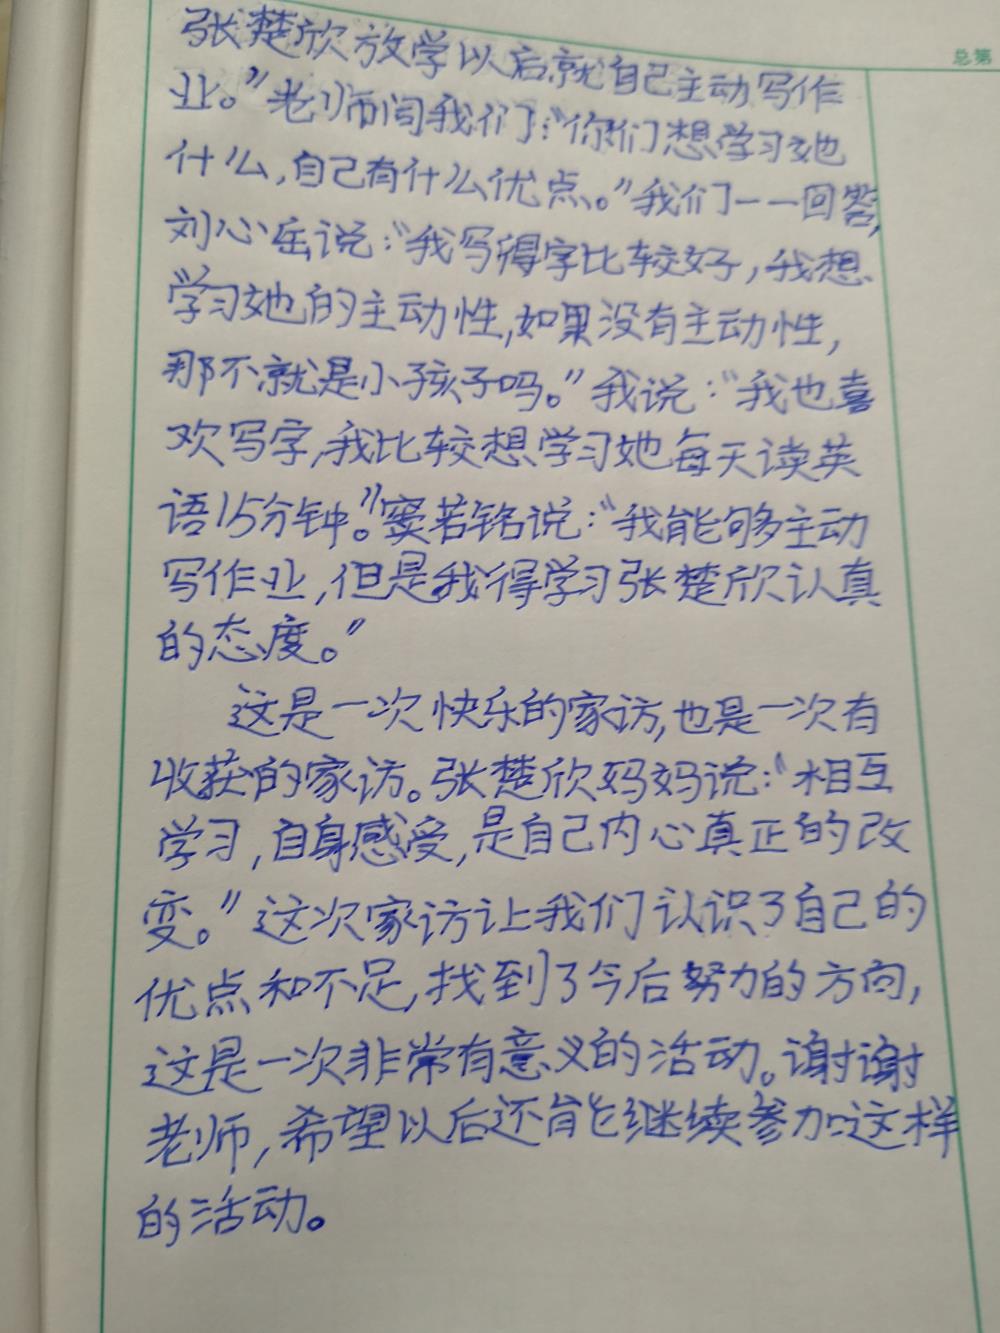 总第
张楚欣放学以后,就自己主动写作
业。”老师问我们:“你们想学习她
什么,自己有什么优点。”我们一一回答,
刘心岳说:“我写得字比较好,我想
学习她的主动性,如果没有主动性,
那不就是小孩子吗。”我说:“我也喜
欢写字,我比较想学习她每天读英
语15分钟。”窦若铭说:“我能够主动
写作业,但是我得学习张楚欣认真
的态度。”
这是一次快乐的家访,也是一次有
收获的家访。张楚欣妈妈说:“相互
学习,自身感受,是自己内心真正的改
变。”这次家访让我们认识了自己的
优点和不足,找到了今后努力的方向,
这是一次非常有意义的活动。谢谢
老师,希望以后还能继续参加这样
的活动。